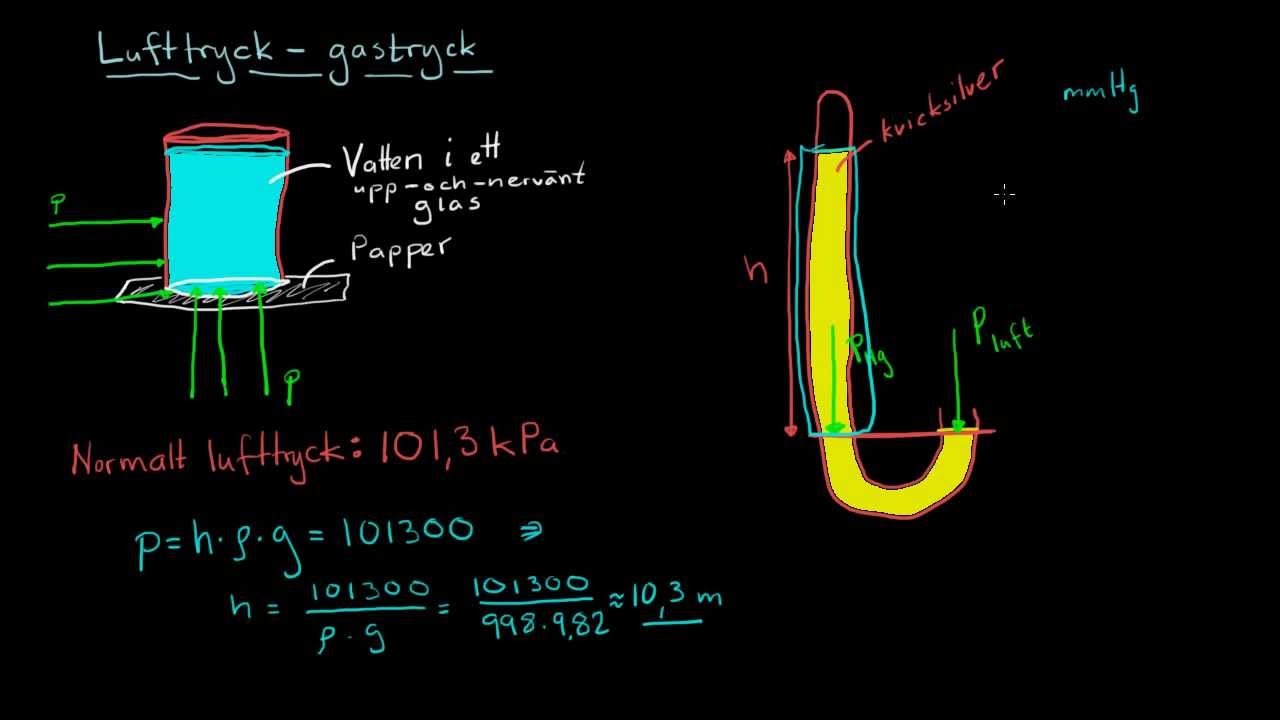 Lufttryck - gastryck
Vatten i ett
upp-och-nervänt
glas
Papper
P
P
Normalt lufttryck: 101,3 kPa
p = h · ρ · g = 101300 ⇒
h = 101300 / ρ · g = 101300 / 998 · 9,82 ≈ 10,3 m
kvicksilver
mmHg
h
PHg
Pluft